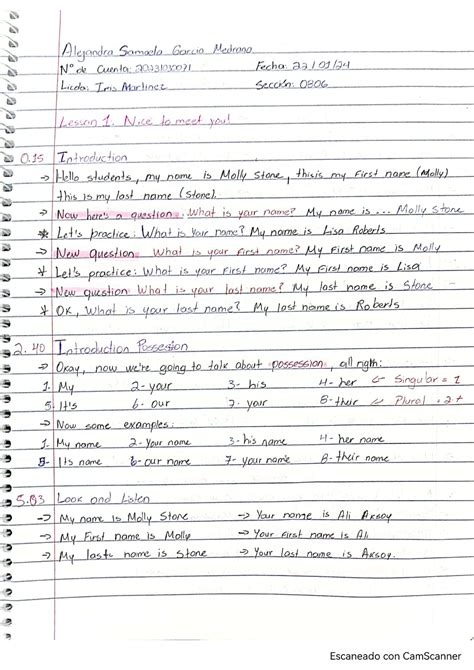 Alejandra Samaela Garcia Medrano
N° de Cuenta: 20231030071 Fecha: 22/01/24
Licda: Iris Martinez Sección: 0806
Lesson 1. Nice to meet you!
0.15 Introduction
→ Hello students, my name is Molly Stone, this is my First name (Molly)
this is my last name (Stone).
→ Now here's a question. What is your name? My name is ... Molly Stone
* Let's practice: What is Your name? My name is Lisa Roberts
→ New question. What is your First name? My First name is Molly
* Let's practice: What is your First name? My First name is Lisa
→ New question What is your last name? My last name is Stone
* OK, What is your last name? My last name is Roberts
2.40 Introduction Possesion
→ Okay, now we're going to talk about possession, all rigth:
1. My 2- your 3- his 4- her ← Singular = 1
5. It's 6- our 7. your 8- their ← Plural = 2+
→ Now some examples:
1. My name 2- Your name 3- his name 4- her name
5- Its name 6- our name 7- your name 8- their name
5.03 Look and Listen
→ My name is Molly Stone → Your name is Ali Aksoy
→ My First name is Molly → Your First name is Ali
→ My last name is Stone → Your last name is Aksoy.
Escaneado con CamScanner